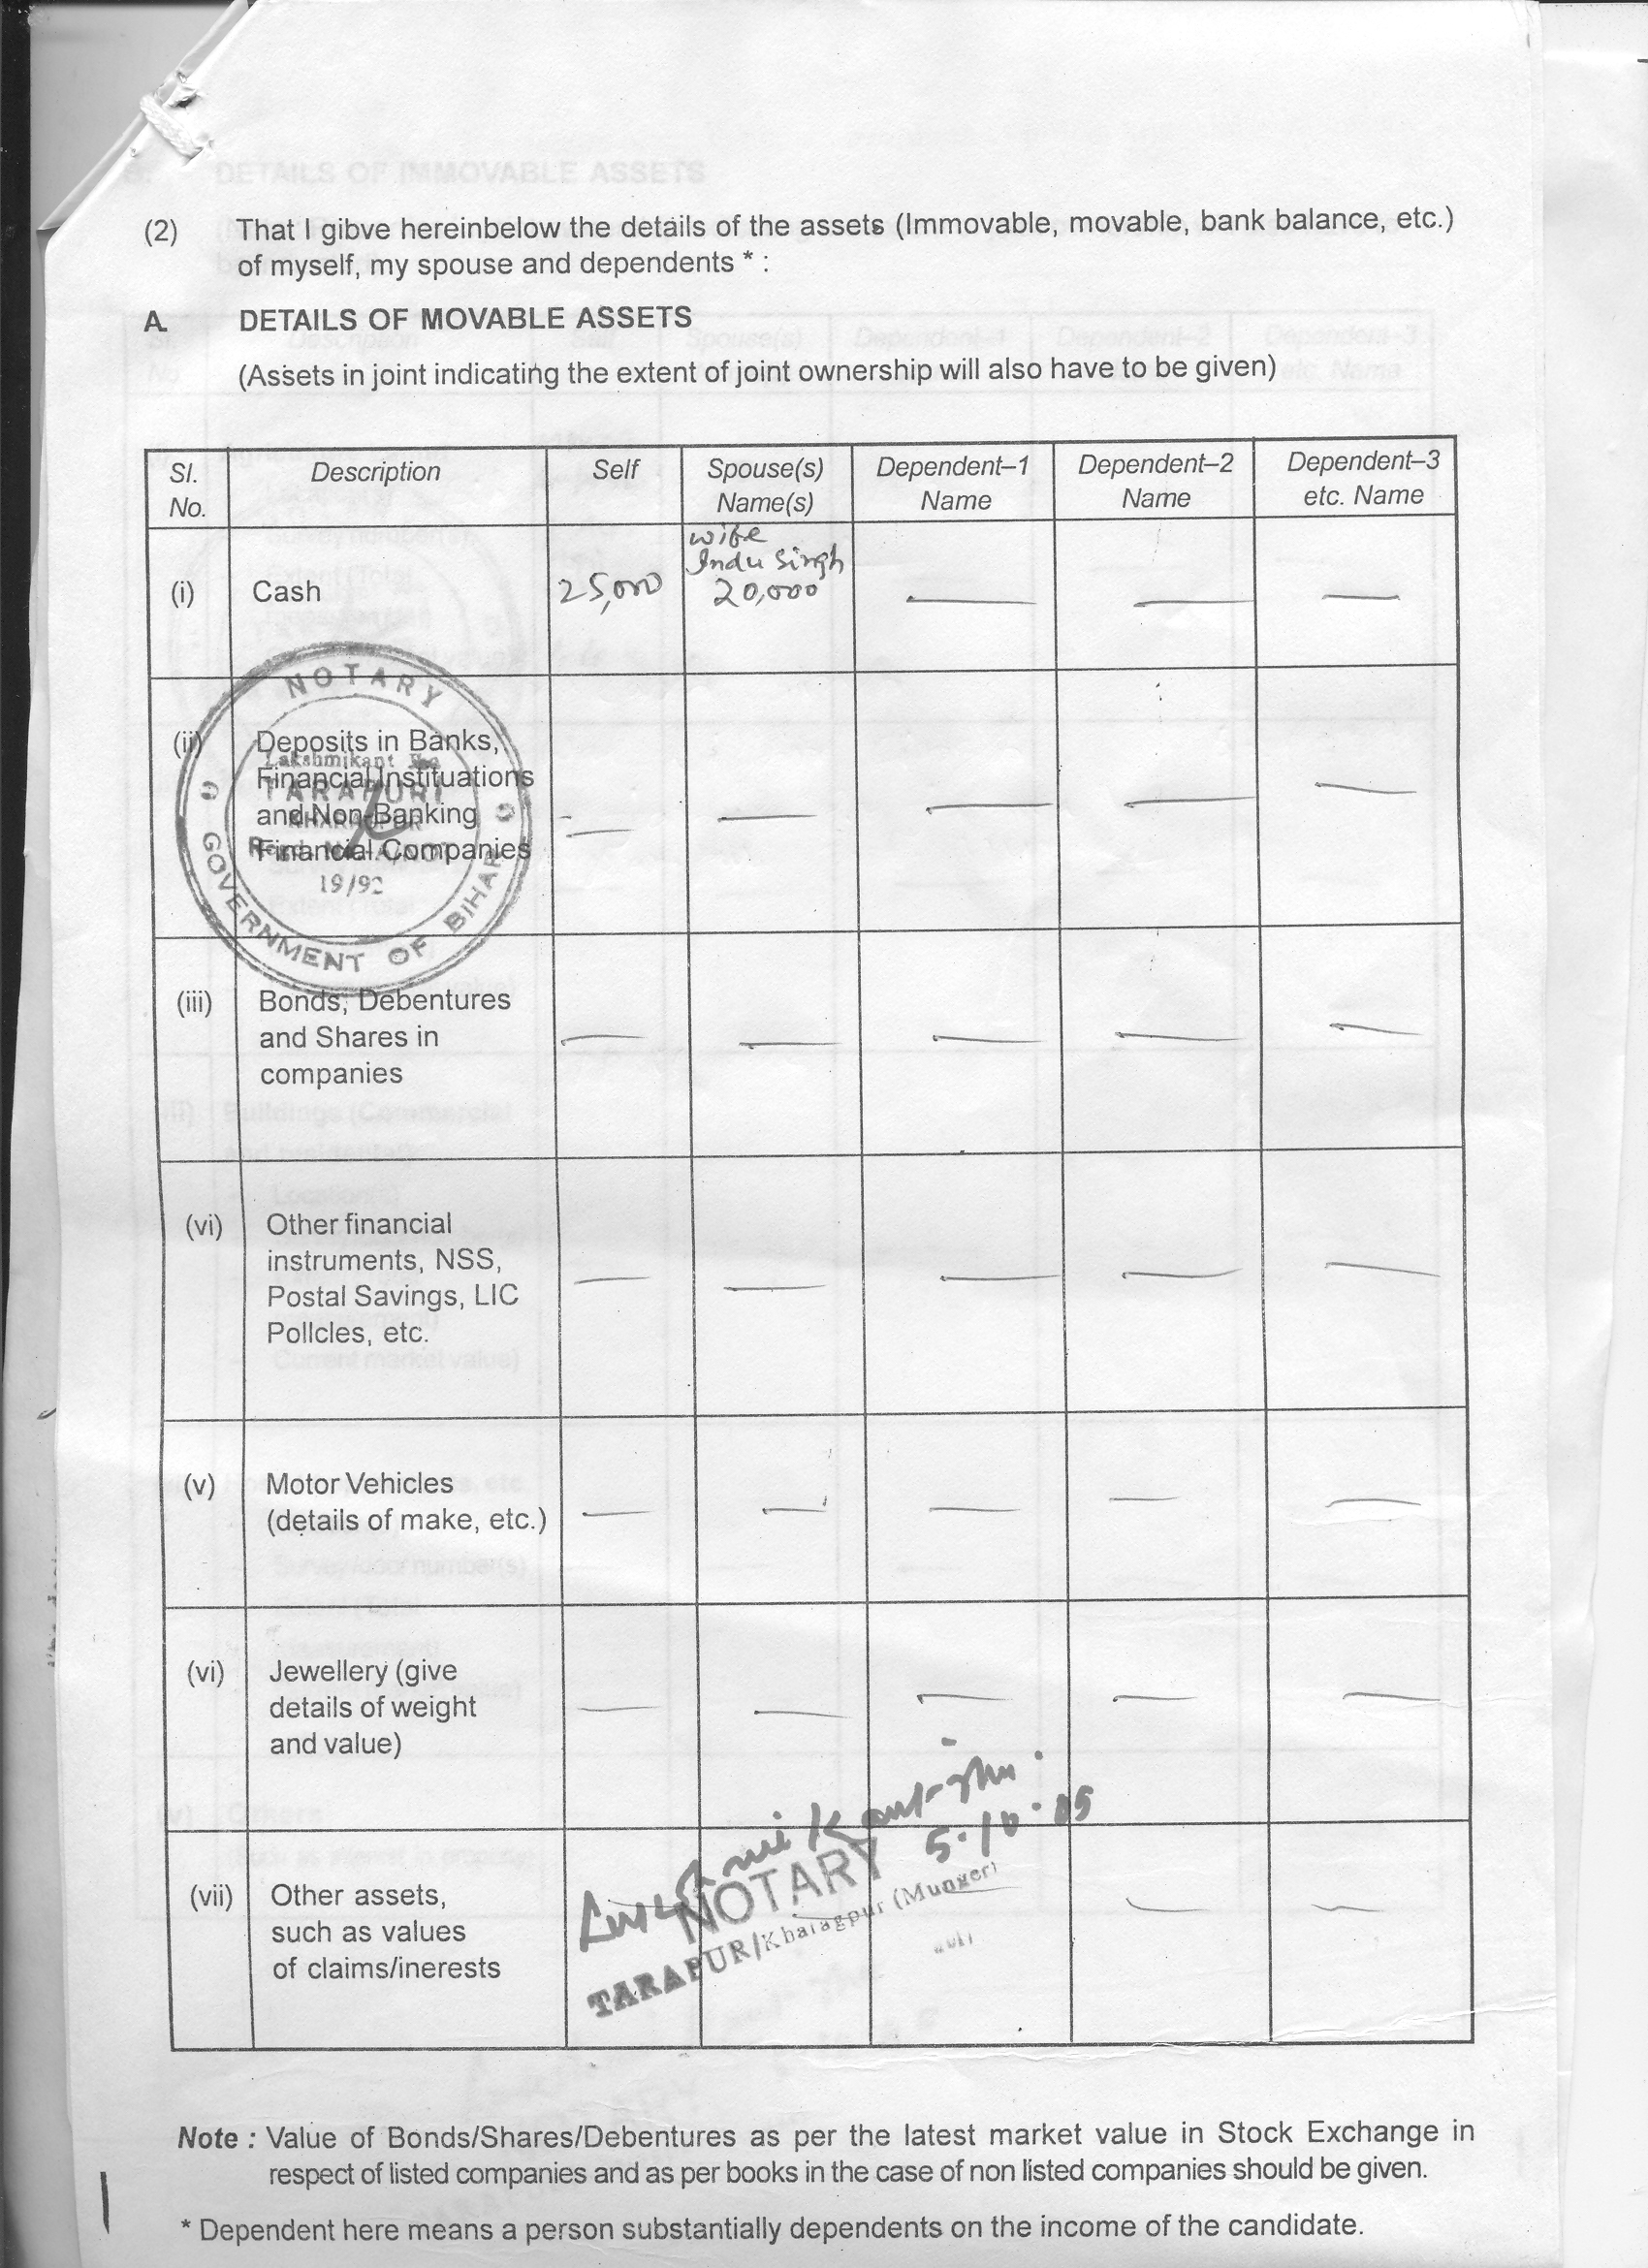 (2) That I gibve hereinbelow the details of the assets (Immovable, movable, bank balance, etc.)
of myself, my spouse and dependents * :
A. DETAILS OF MOVABLE ASSETS
(Assets in joint indicating the extent of joint ownership will also have to be given)
Sl. No. Description Self Spouse(s) Name(s) Dependent–1 Name Dependent–2 Name Dependent–3 etc. Name
wife
Indu Singh
(i) Cash 25,000 20,000 — — —
NOTARY
GOVERNMENT OF BIHAR
Lakshmikant
TARAPUR
19/92
(ii) Deposits in Banks,
Financial Instituations
and Non-Banking
Financial Companies
— — — — —
(iii) Bonds, Debentures
and Shares in
companies
— — — — —
(vi) Other financial
instruments, NSS,
Postal Savings, LIC
Pollcles, etc.
— — — — —
(v) Motor Vehicles
(details of make, etc.)
— — — — —
(vi) Jewellery (give
details of weight
and value)
— — — — —
5.10.05
NOTARY
TARAPUR/Kharagpur (Munger)
(vii) Other assets,
such as values
of claims/inerests
— —
Note : Value of Bonds/Shares/Debentures as per the latest market value in Stock Exchange in
respect of listed companies and as per books in the case of non listed companies should be given.
* Dependent here means a person substantially dependents on the income of the candidate.